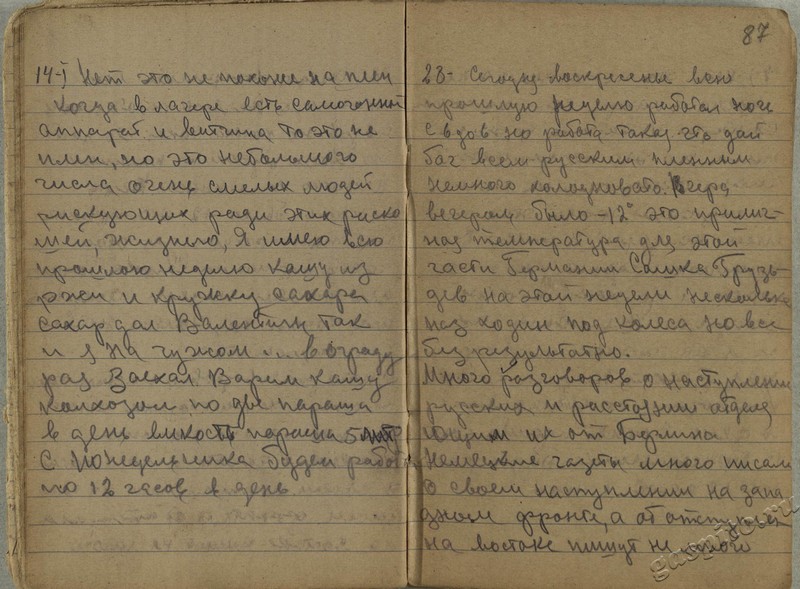 14-I Нет это не похоже на плен
когда в лагере есть самогонный
аппарат и ветчина то это не
плен, но это небольшого
числа очень смелых людей
рискующих ради этих роско
шей, жизнью, Я имею всю
прошлою неделю кашу из
ржи и кружку сахера
сахар дал Валентин так
и я на чужом ... в ограду
раз Заехал Варим кашу
колхозом по две параша
в день емкость параша 5 литр
С понедельника будем работ
по 12 часов в день
87
28- Сегодня воскресенье всю
прошлую неделю работал ноче
с вдов но работа такая что дай
бог всем русским пленным
немного холодновато. Вчера
вечером было -12° это прилич-
ная температура для этой
части Германии Сашка Грузь-
дев на этой недели несколько
раз ходил под колеса но все
безрезультатно.
Много разговоров о наступлении
русских и расстоянии отделя
ющим их от Берлина
Немецкие газеты много писали
о своем наступлении на запа
дном фронте, а от отступлен
на востоке пишут не много